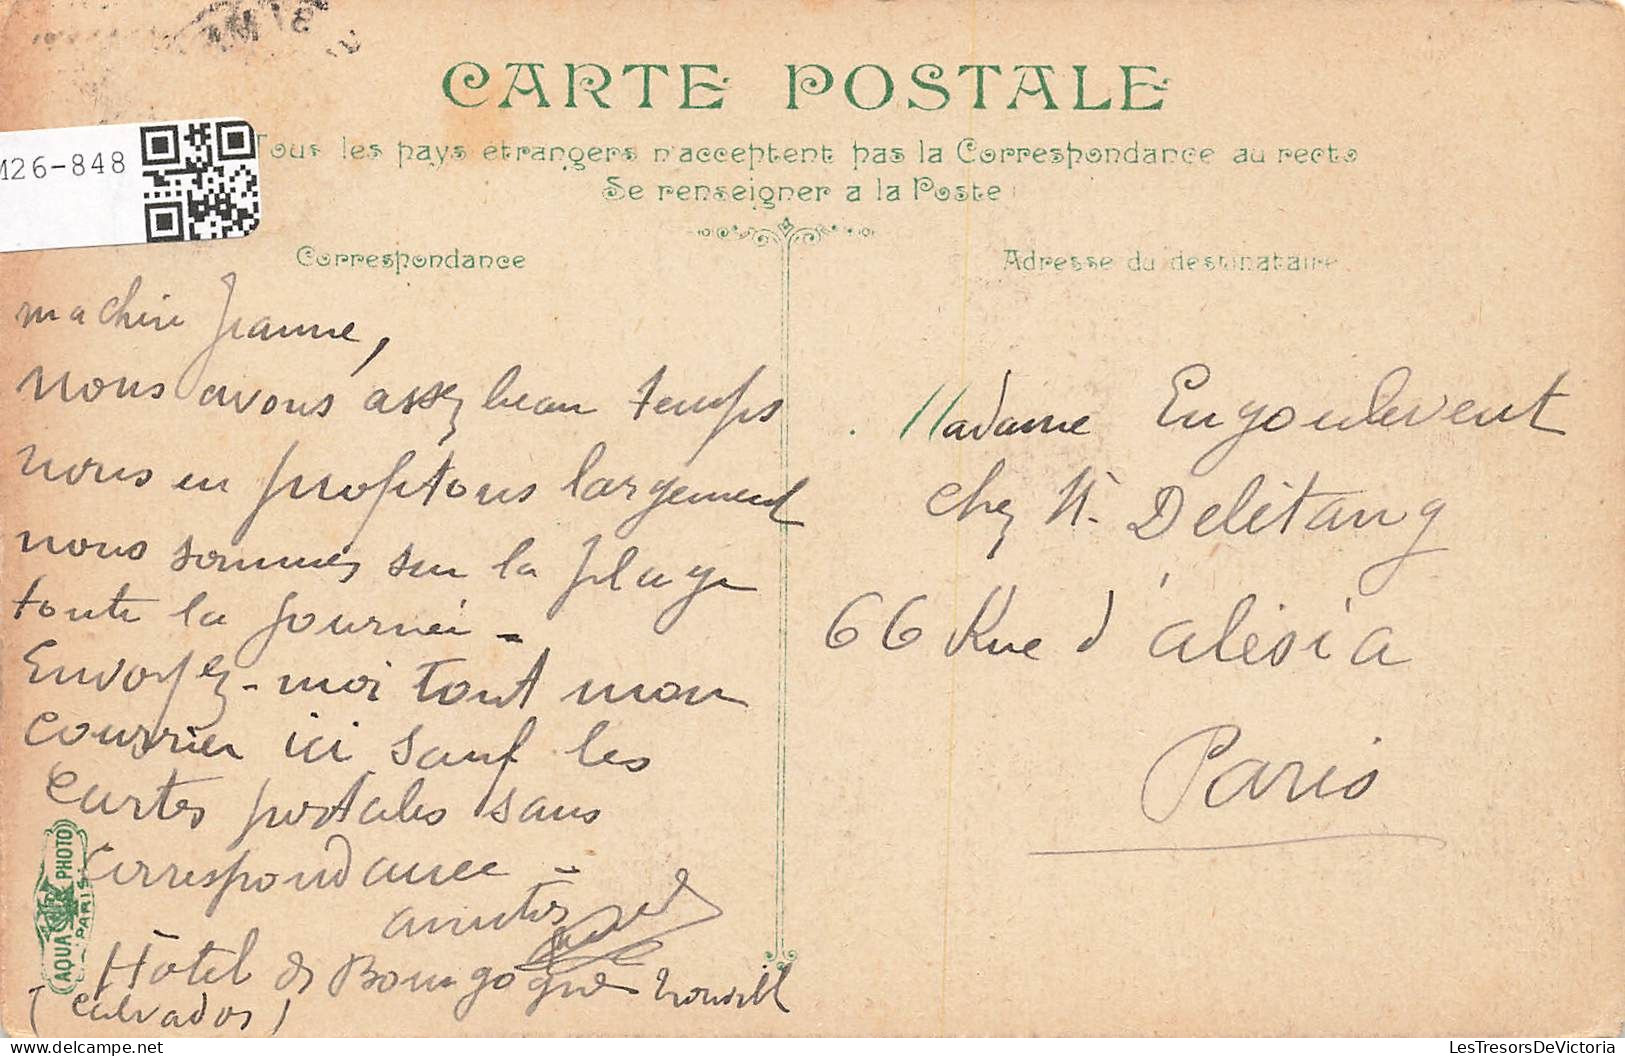 CARTE POSTALE
Tous les pays étrangers n'acceptent pas la Correspondance au recto
Se renseigner à la Poste
M26-848
Correspondance
ma chère Jeanne,
nous avons assez beau temps
nous en profitons largement
nous sommes sur la plage
toute la journée -
Envoyez-moi tout mon
courrier ici sauf les
cartes postales sans
correspondance -
amitiés
Hôtel de Bourgogne Trouville
(Calvados)
AQUA PHOTO
PARIS
Adresse du destinataire
Madame Engoulevent
chez M. Delétang
66 Rue d'alésia
Paris
LesTresorsDeVictoria